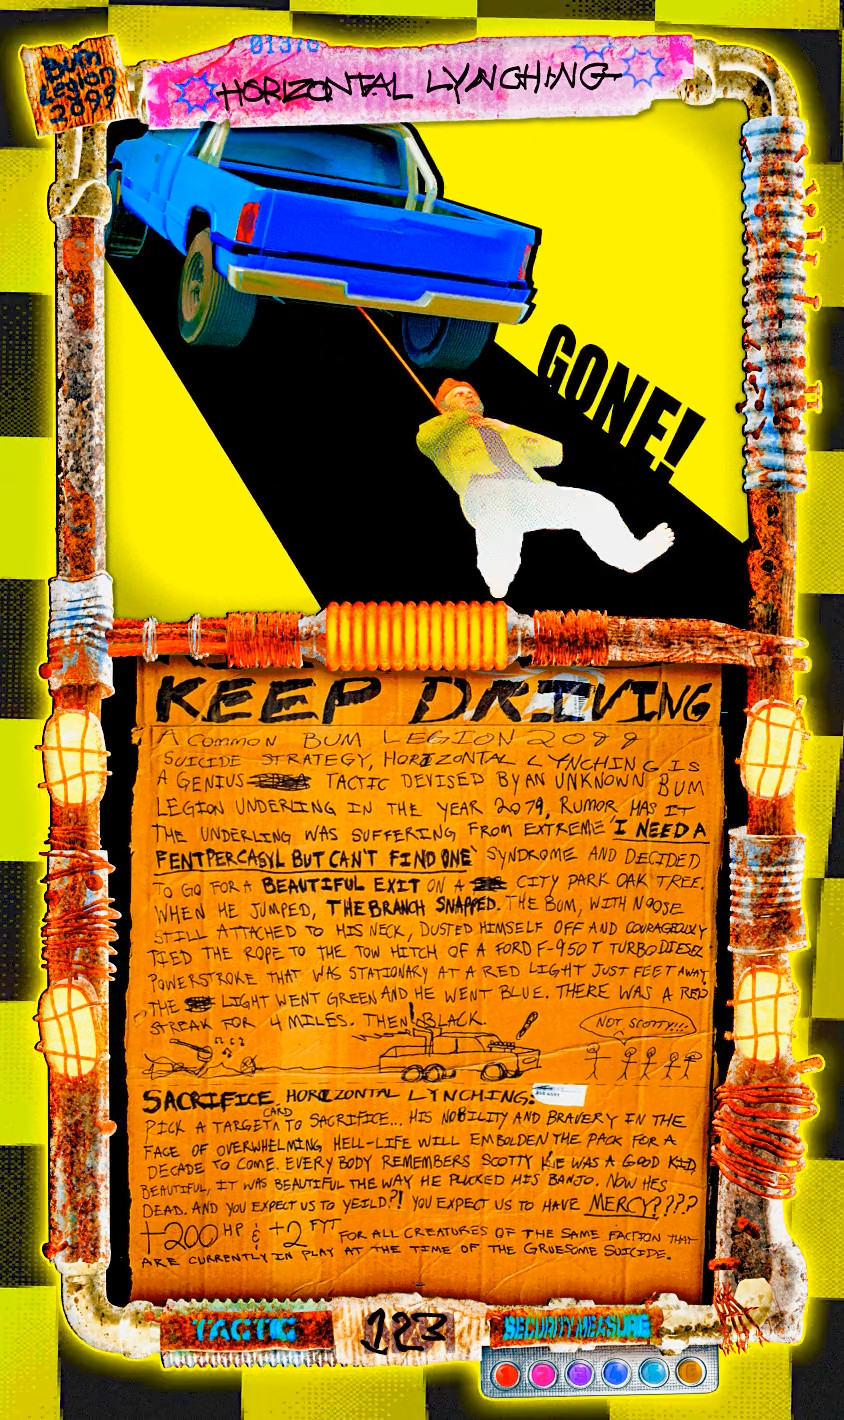 01378
Bum
Legion
2099
HORIZONTAL LYNCHING
GONE!
KEEP DRIVING
A COMMON BUM LEGION 2099
SUICIDE STRATEGY, HORIZONTAL LYNCHING IS
A GENIUS TACTIC DEVISED BY AN UNKNOWN BUM
LEGION UNDERLING IN THE YEAR 2079, RUMOR HAS IT
THE UNDERLING WAS SUFFERING FROM EXTREME 'I NEED A
FENTPERCASYL BUT CAN'T FIND ONE' SYNDROME AND DECIDED
TO GO FOR A BEAUTIFUL EXIT ON A CITY PARK OAK TREE.
WHEN HE JUMPED, THE BRANCH SNAPPED. THE BUM, WITH NOOSE
STILL ATTACHED TO HIS NECK, DUSTED HIMSELF OFF AND COURAGEOUSLY
TIED THE ROPE TO THE TOW HITCH OF A FORD F-950T TURBO DIESEL
POWERSTROKE THAT WAS STATIONARY AT A RED LIGHT JUST FEET AWAY.
THE LIGHT WENT GREEN AND HE WENT BLUE. THERE WAS A RED
STREAK FOR 4 MILES. THEN BLACK.
NOT, SCOTTY!!!!
SACRIFICE HORIZONTAL LYNCHING:
PICK A TARGET CARD TO SACRIFICE... HIS NOBILITY AND BRAVERY IN THE
FACE OF OVERWHELMING HELL-LIFE WILL EMBOLDEN THE PACK FOR A
DECADE TO COME. EVERYBODY REMEMBERS SCOTTY HE WAS A GOOD KID,
BEAUTIFUL, IT WAS BEAUTIFUL THE WAY HE PLUCKED HIS BANJO. NOW HES
DEAD. AND YOU EXPECT US TO YEILD?! YOU EXPECT US TO HAVE MERCY????
+200 HP & +2 FYT FOR ALL CREATURES OF THE SAME FACTION THAT
ARE CURRENTLY IN PLAY AT THE TIME OF THE GRUESOME SUICIDE.
TACTIC
123
SECURITY MEASURE